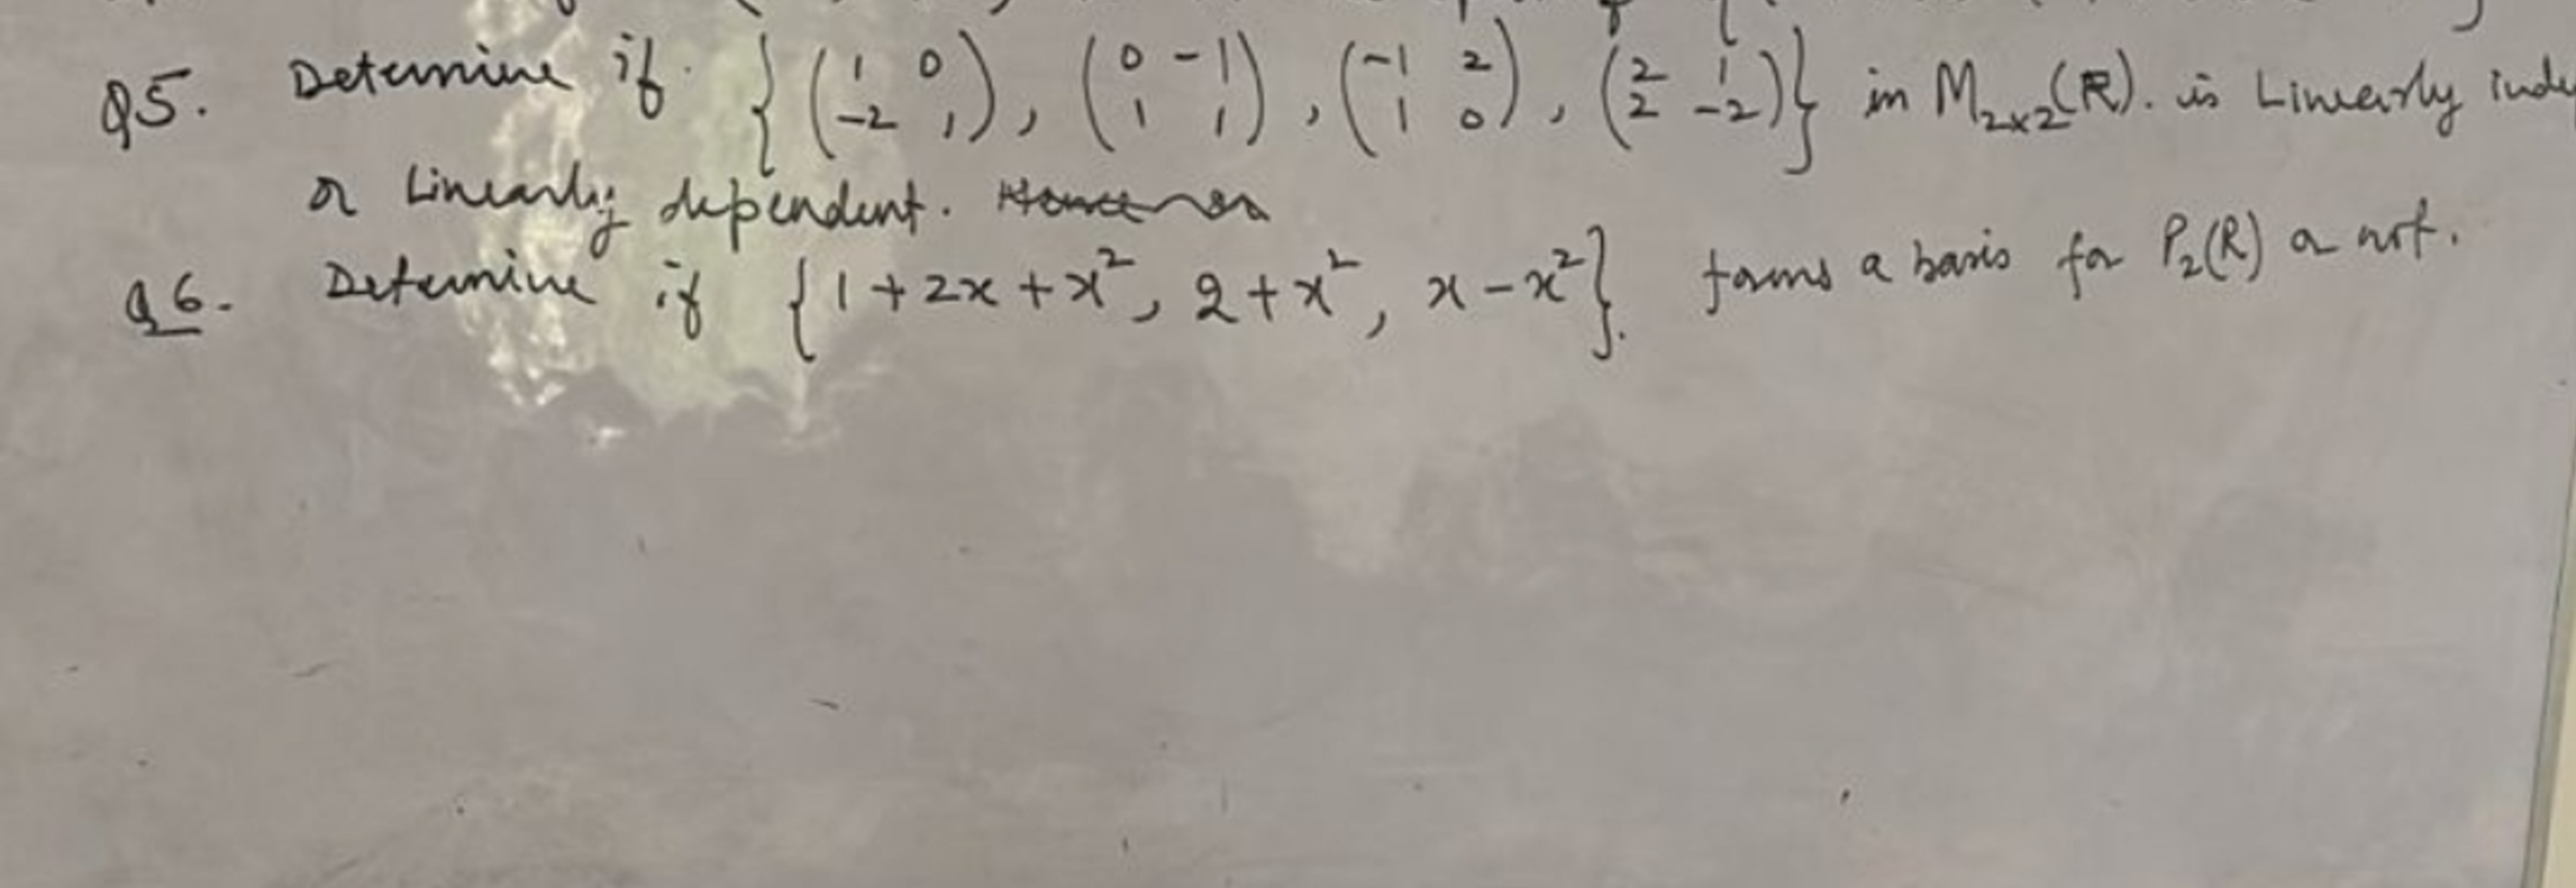 Q5. Determine if { ( 1 0 ; -2 1 ) , ( 0 -1 ; 1 1 ) , ( -1 2 ; 1 0 ) , ( 2 1 ; 2 -2 ) } in M₂ₓ₂(ℝ). is Linearly inde
or Linearly dependent.
Q6. Determine if { 1 + 2x + x², 2 + x², x - x² }. forms a basis for P₂(R) or not.